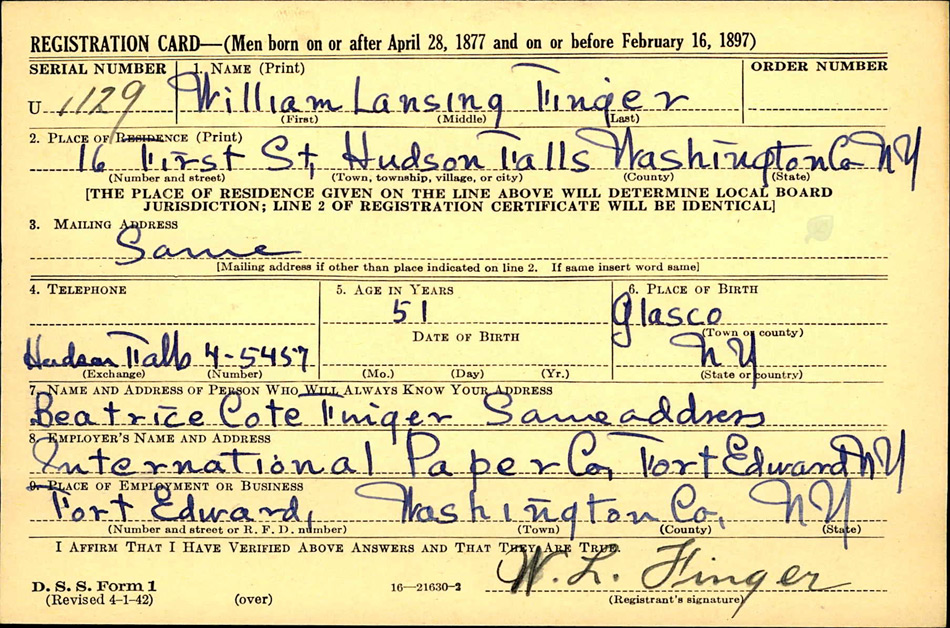 REGISTRATION CARD—(Men born on or after April 28, 1877 and on or before February 16, 1897)
SERIAL NUMBER 1. NAME (Print) ORDER NUMBER
U 1129 William Lansing Finger
(First) (Middle) (Last)
2. PLACE OF RESIDENCE (Print)
16 First St, Hudson Falls Washington Co NY
(Number and street) (Town, township, village, or city) (County) (State)
[THE PLACE OF RESIDENCE GIVEN ON THE LINE ABOVE WILL DETERMINE LOCAL BOARD
JURISDICTION; LINE 2 OF REGISTRATION CERTIFICATE WILL BE IDENTICAL]
3. MAILING ADDRESS
Same
[Mailing address if other than place indicated on line 2. If same insert word same]
4. TELEPHONE 5. AGE IN YEARS 6. PLACE OF BIRTH
51 Glasco
DATE OF BIRTH (Town or county)
Hudson Falls 4-5457 NY
(Exchange) (Number) (Mo.) (Day) (Yr.) (State or country)
7. NAME AND ADDRESS OF PERSON WHO WILL ALWAYS KNOW YOUR ADDRESS
Beatrice Cote Finger Same address
8. EMPLOYER'S NAME AND ADDRESS
International Paper Co, Fort Edward NY
9. PLACE OF EMPLOYMENT OR BUSINESS
Fort Edward, Washington Co, NY
(Number and street or R. F. D. number) (Town) (County) (State)
I AFFIRM THAT I HAVE VERIFIED ABOVE ANSWERS AND THAT THEY ARE TRUE.
W. L. Finger
D. S. S. Form 1 16—21630-2
(Revised 4-1-42) (over) (Registrant's signature)